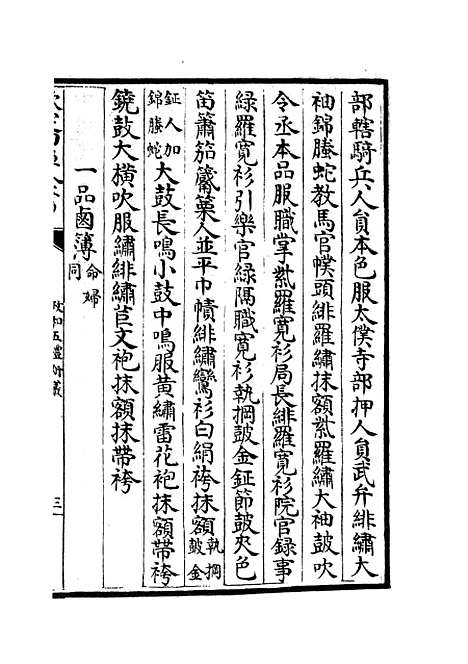 部轄騎兵人員本色服太僕寺部押人員武弁緋繡大
袖錦螣蛇教馬官幞頭緋羅繡抹額紫羅繡大袖鼓吹
令丞本品服職掌紫羅寛衫局長緋羅寛衫院官録事
緑羅寛衫引樂官緑隔職寛衫執掆鼓金鉦節鼓夾色
笛簫笳篥人並平巾幘緋繡鸞衫白絹袴抹額執掆鼓金
鉦人加錦螣蛇大鼓長鳴小鼓中鳴服黃繡雷花袍抹額帶袴
鐃鼓大横吹服繡緋繡苣文袍抹額抹帶袴
一品鹵簿命婦同
政和五禮新儀
三